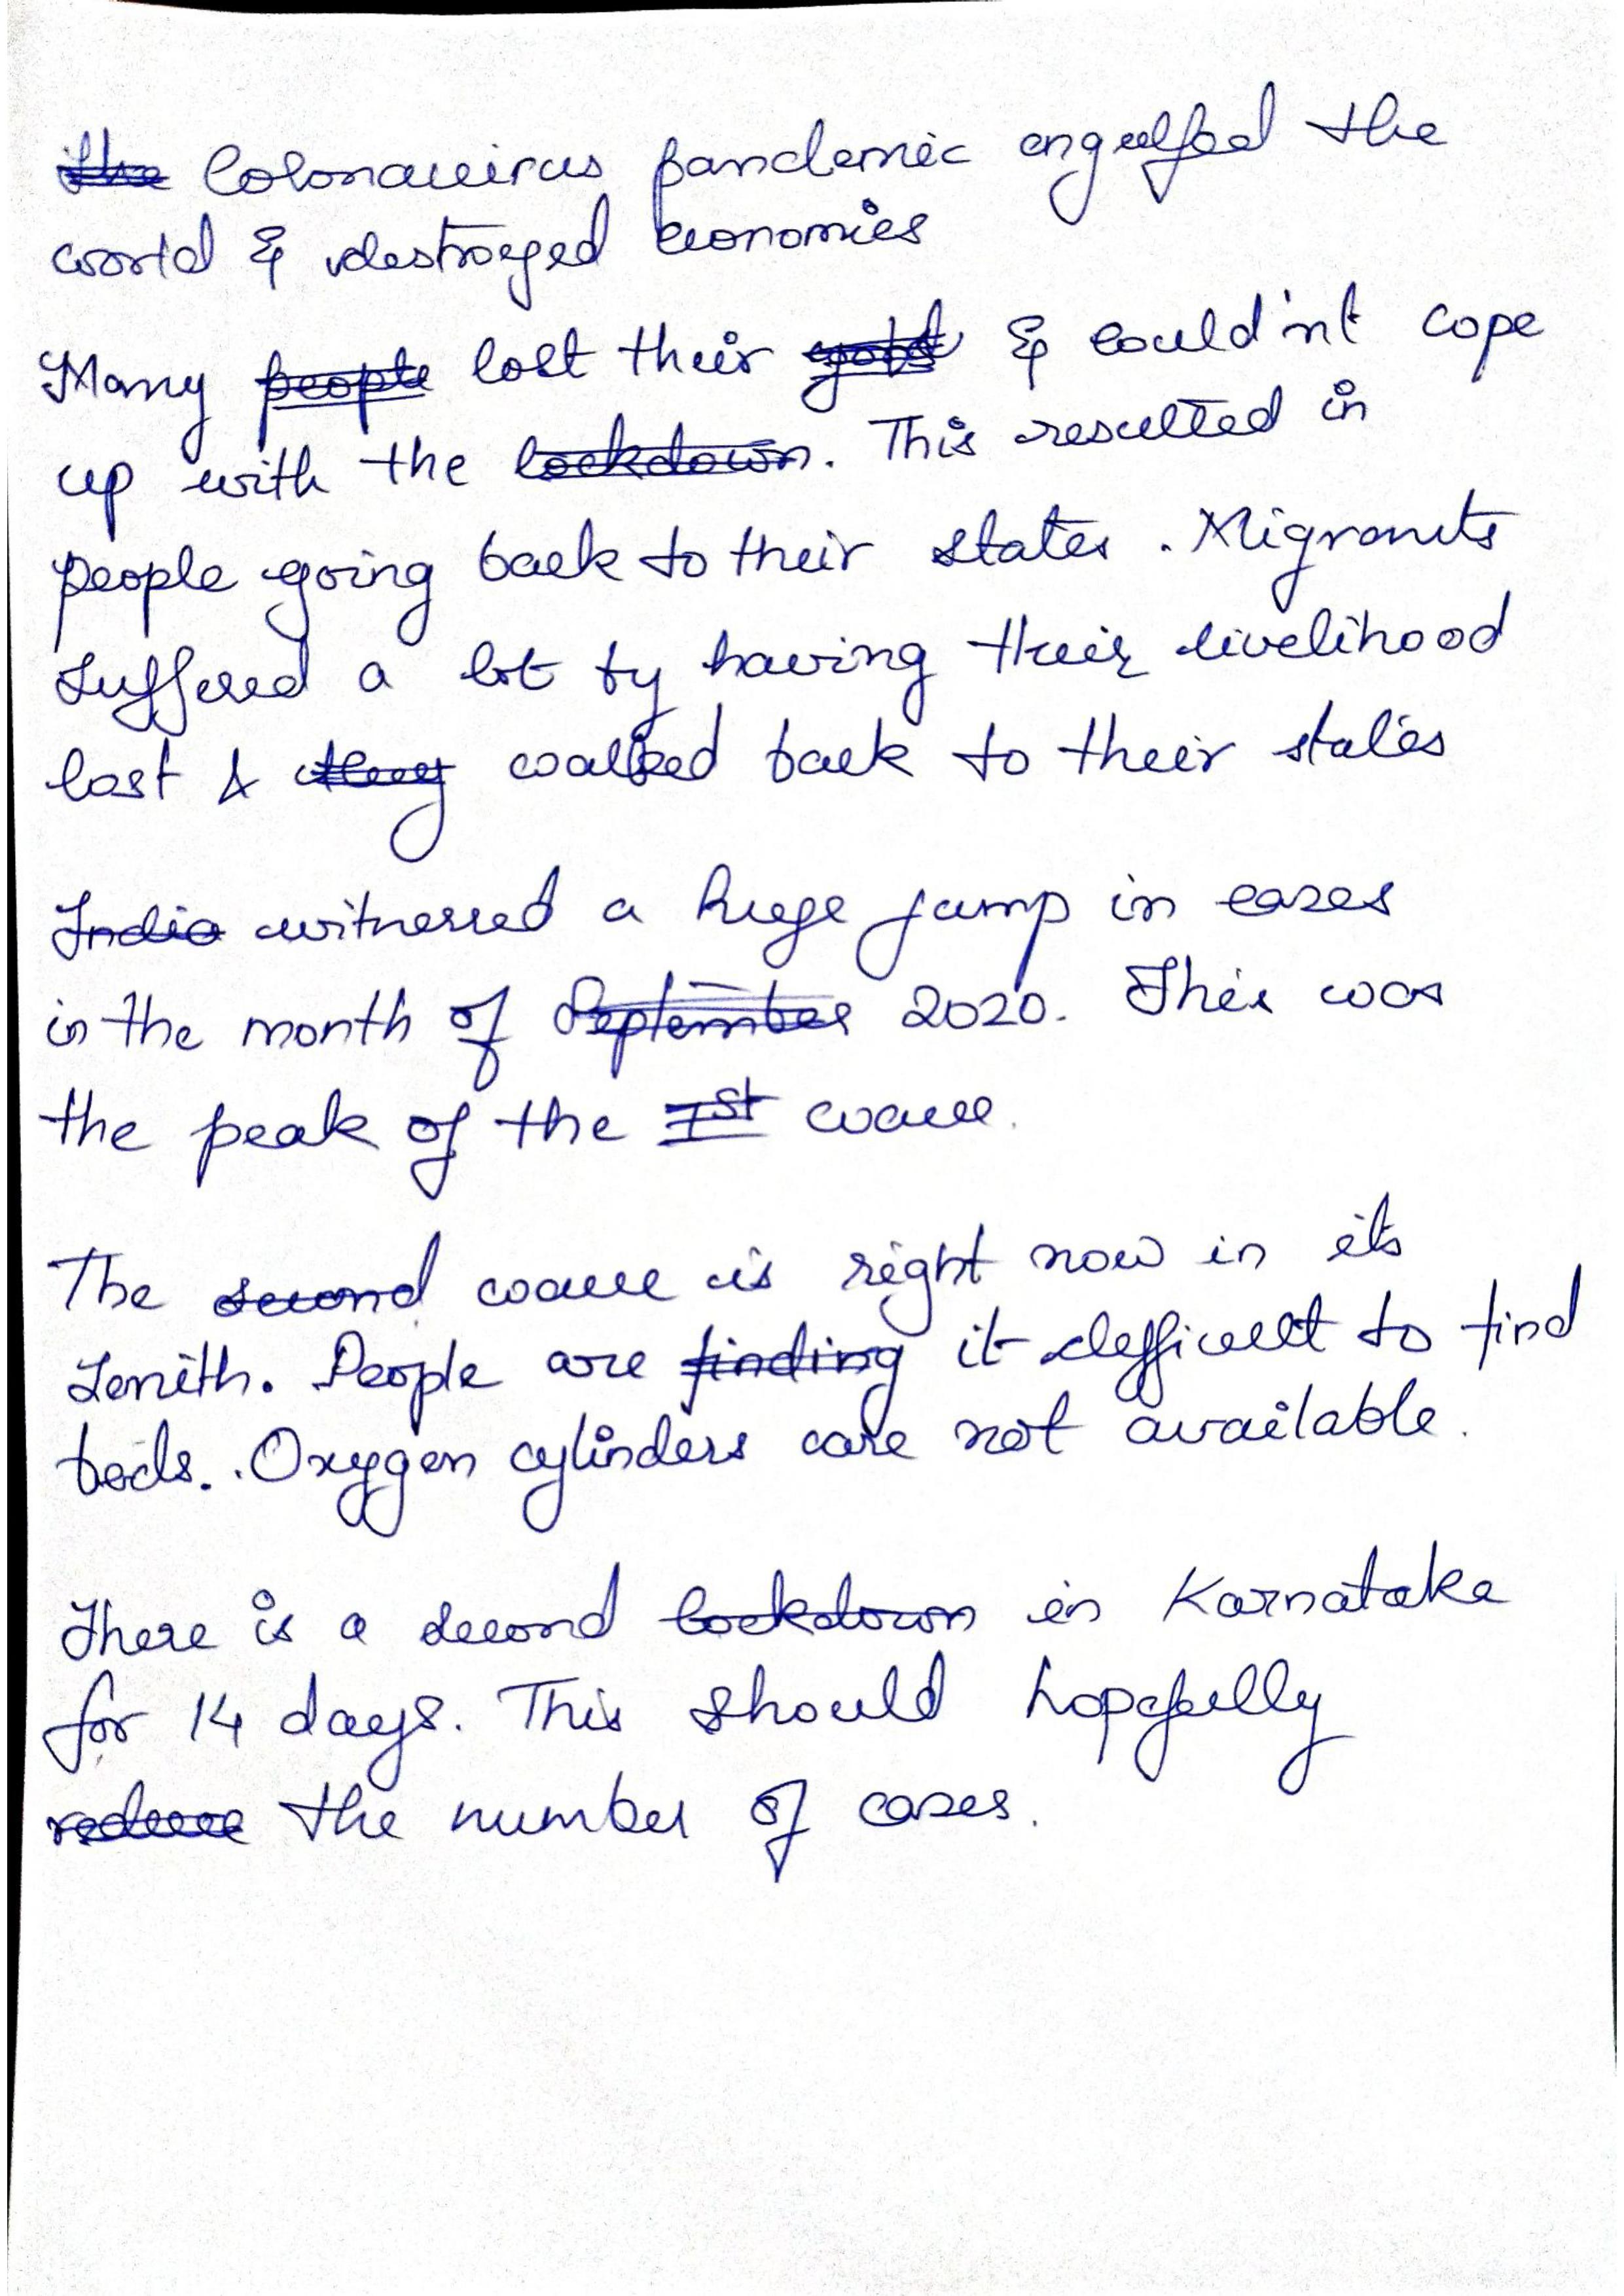 the Coronavirus pandemic engulfed the
world & destroyed economies
Many people lost their jobs & could'nt cope
up with the lockdown. This resulted in
people going back to their states. Migrants
suffered a lot by having their livelihood
lost & they walked back to their states
India witnessed a huge jump in cases
in the month of September 2020. This was
the peak of the 1st wave.
The second wave is right now in its
zenith. People are finding it difficult to find
beds. Oxygen cylinders are not available.
There is a second lockdown in Karnataka
for 14 days. This should hopefully
reduce the number of cases.